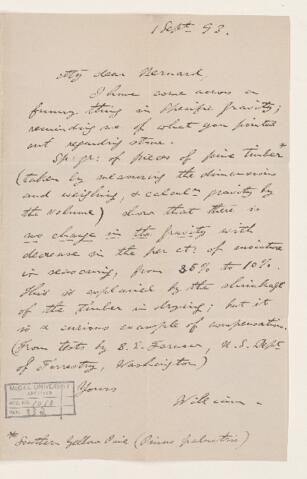 1 Septr 93.
My dear Bernard,
I have come across a
funny thing in Specific gravity;
reminding me of what you pointed
out regarding stone.
Sp: gr: of pieces of pine timber*
(taken by measuring the dimensions
and weighing, & calculg gravity by
the volume) show that there is
no change in the gravity with
decrease in the per ct: of moisture
in seasoning, from 35% to 10%.
This is explained by the shrinkage
of the timber in drying; but it
is a curious example of compensation.
(From tests by B. E. Fernow, U.S. Dept
of Forrestry, Washington)
Yours
William
McGILL UNIVERSITY
ARCHIVES
ACC. NO.
REF.
* Southern Yellow Pine (Pinus palustris)